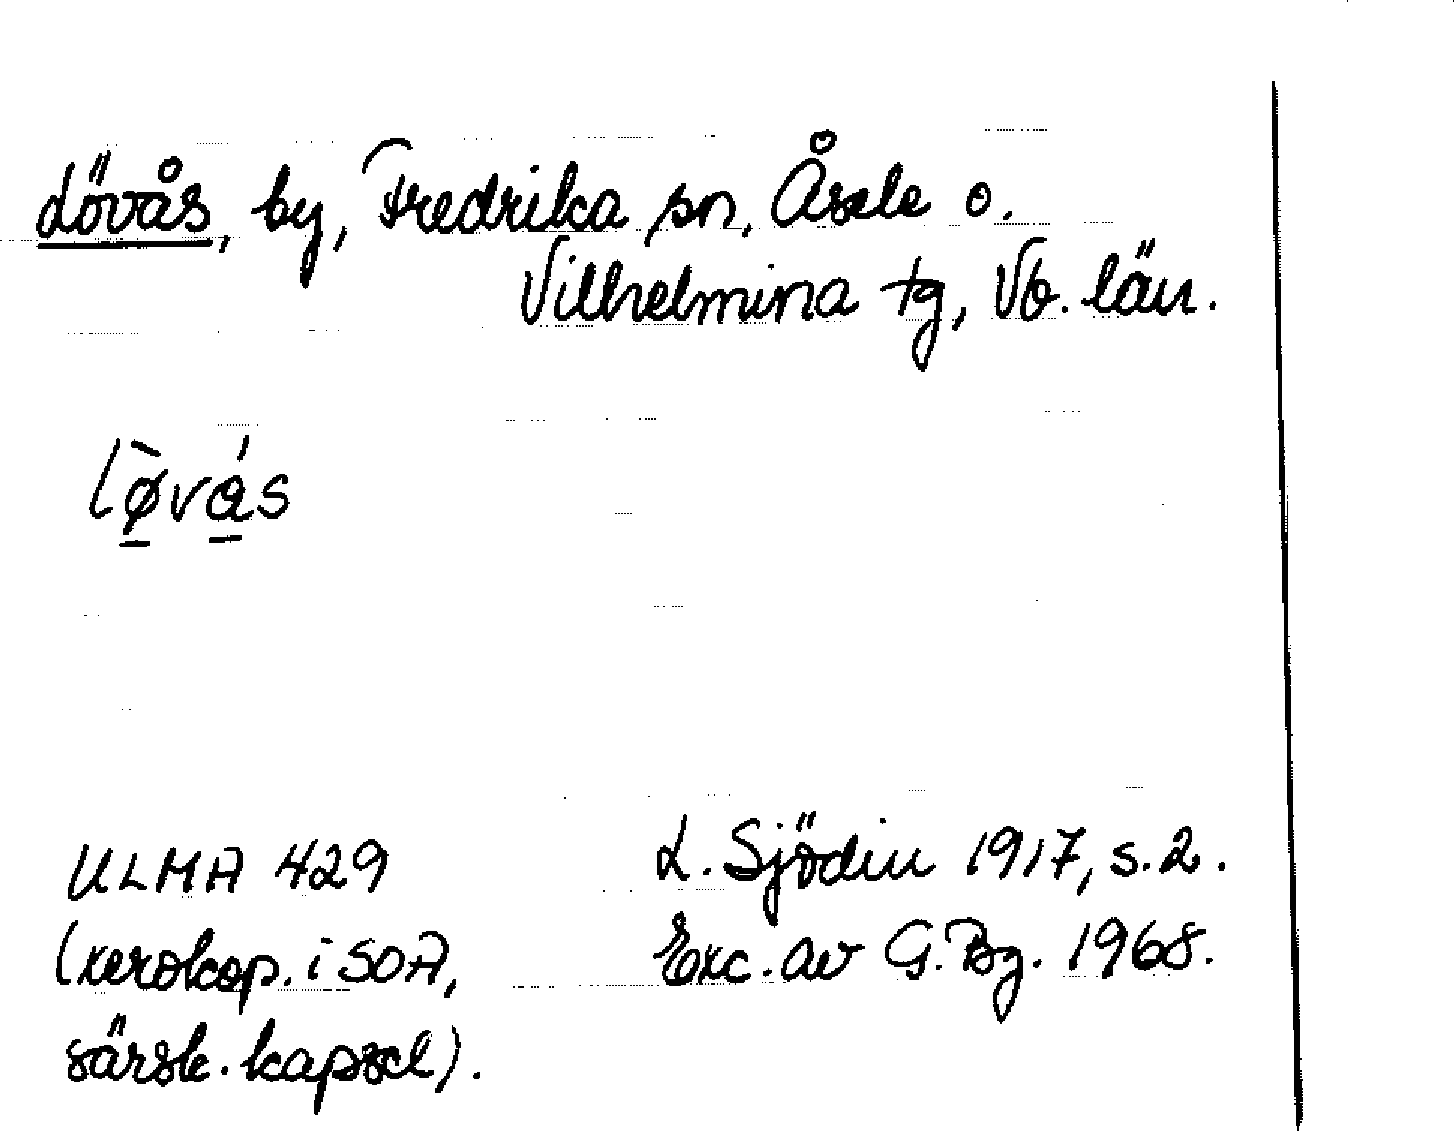 Lövås, by, Fredrika sn, Åsele o.
Vilhelmina tg, Vb. län.
lø̠̀vǻ̠s
ULMA 429
(xerokop. i SOA,
särsk. kapsel).
L. Sjödin 1917, s. 2.
Exc. av G. Bg. 1968.